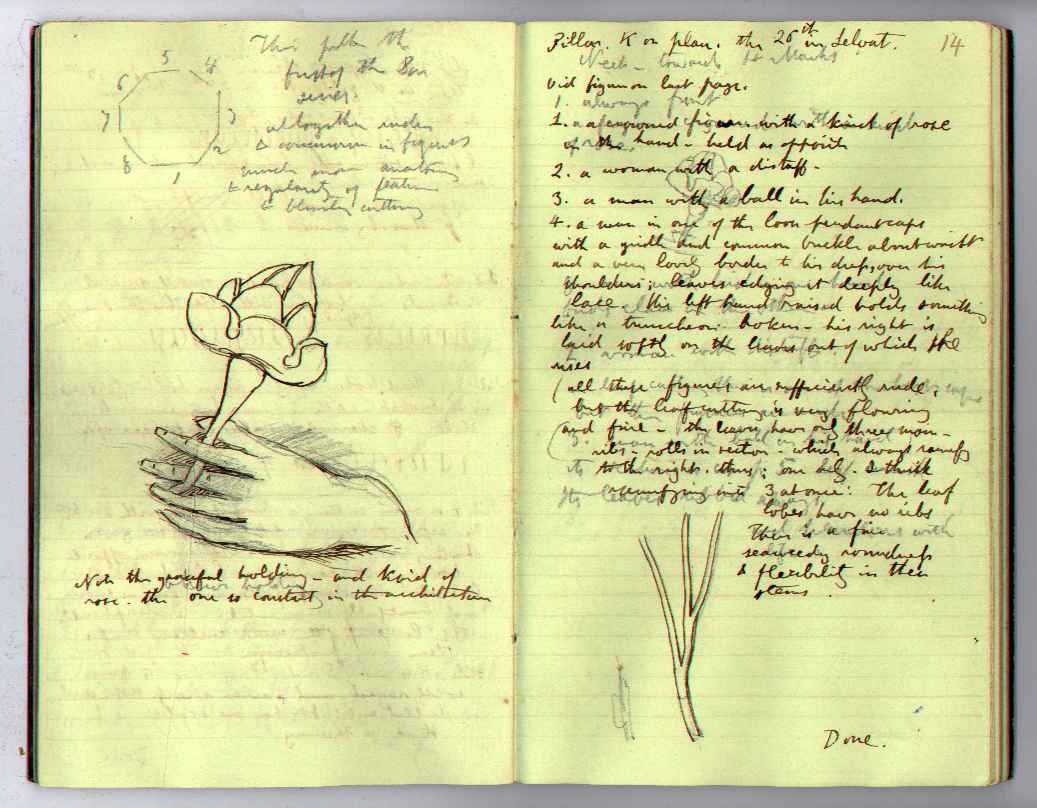 This pillar the
first of the Sea
series.
5
4
6
3
7
2
8
1
altogether ruder
& commoner in figures
much more anatomy
& regularity of feature
& blunter cutting
Note the graceful holding - and Kind of
rose. the one so constant in the architecture
14
Pillar. K on plan. the 26th in Selvat.
Next - towards St Marks
Vid figure on last page.
1. always first
1. a a crowned figure with a kind of rose
in the hand - held as opposite
2. a woman with a distaff -
3. a man with a ball in his hand.
4. a man in one of the loose pendant caps
with a girdle and common buckle about waist
and a very lovely border to his dress, over his
shoulders; leaves edging it deeply like
lace. His left hand raised holds something
like a truncheon broken - his right is
laid softly on the leaves out of which he
rises
(all these figures are sufficiently rude,
but the leaf cutting is very flowing
and fine - the leaves have only three main
ribs - rolls in section - which always ramify
to the right. thus: one only. & thick
ramifying into 3 at once: The leaf
lobes have no ribs
There is a fine
seaweedy roundness
& flexibility in their
stems.
Done.